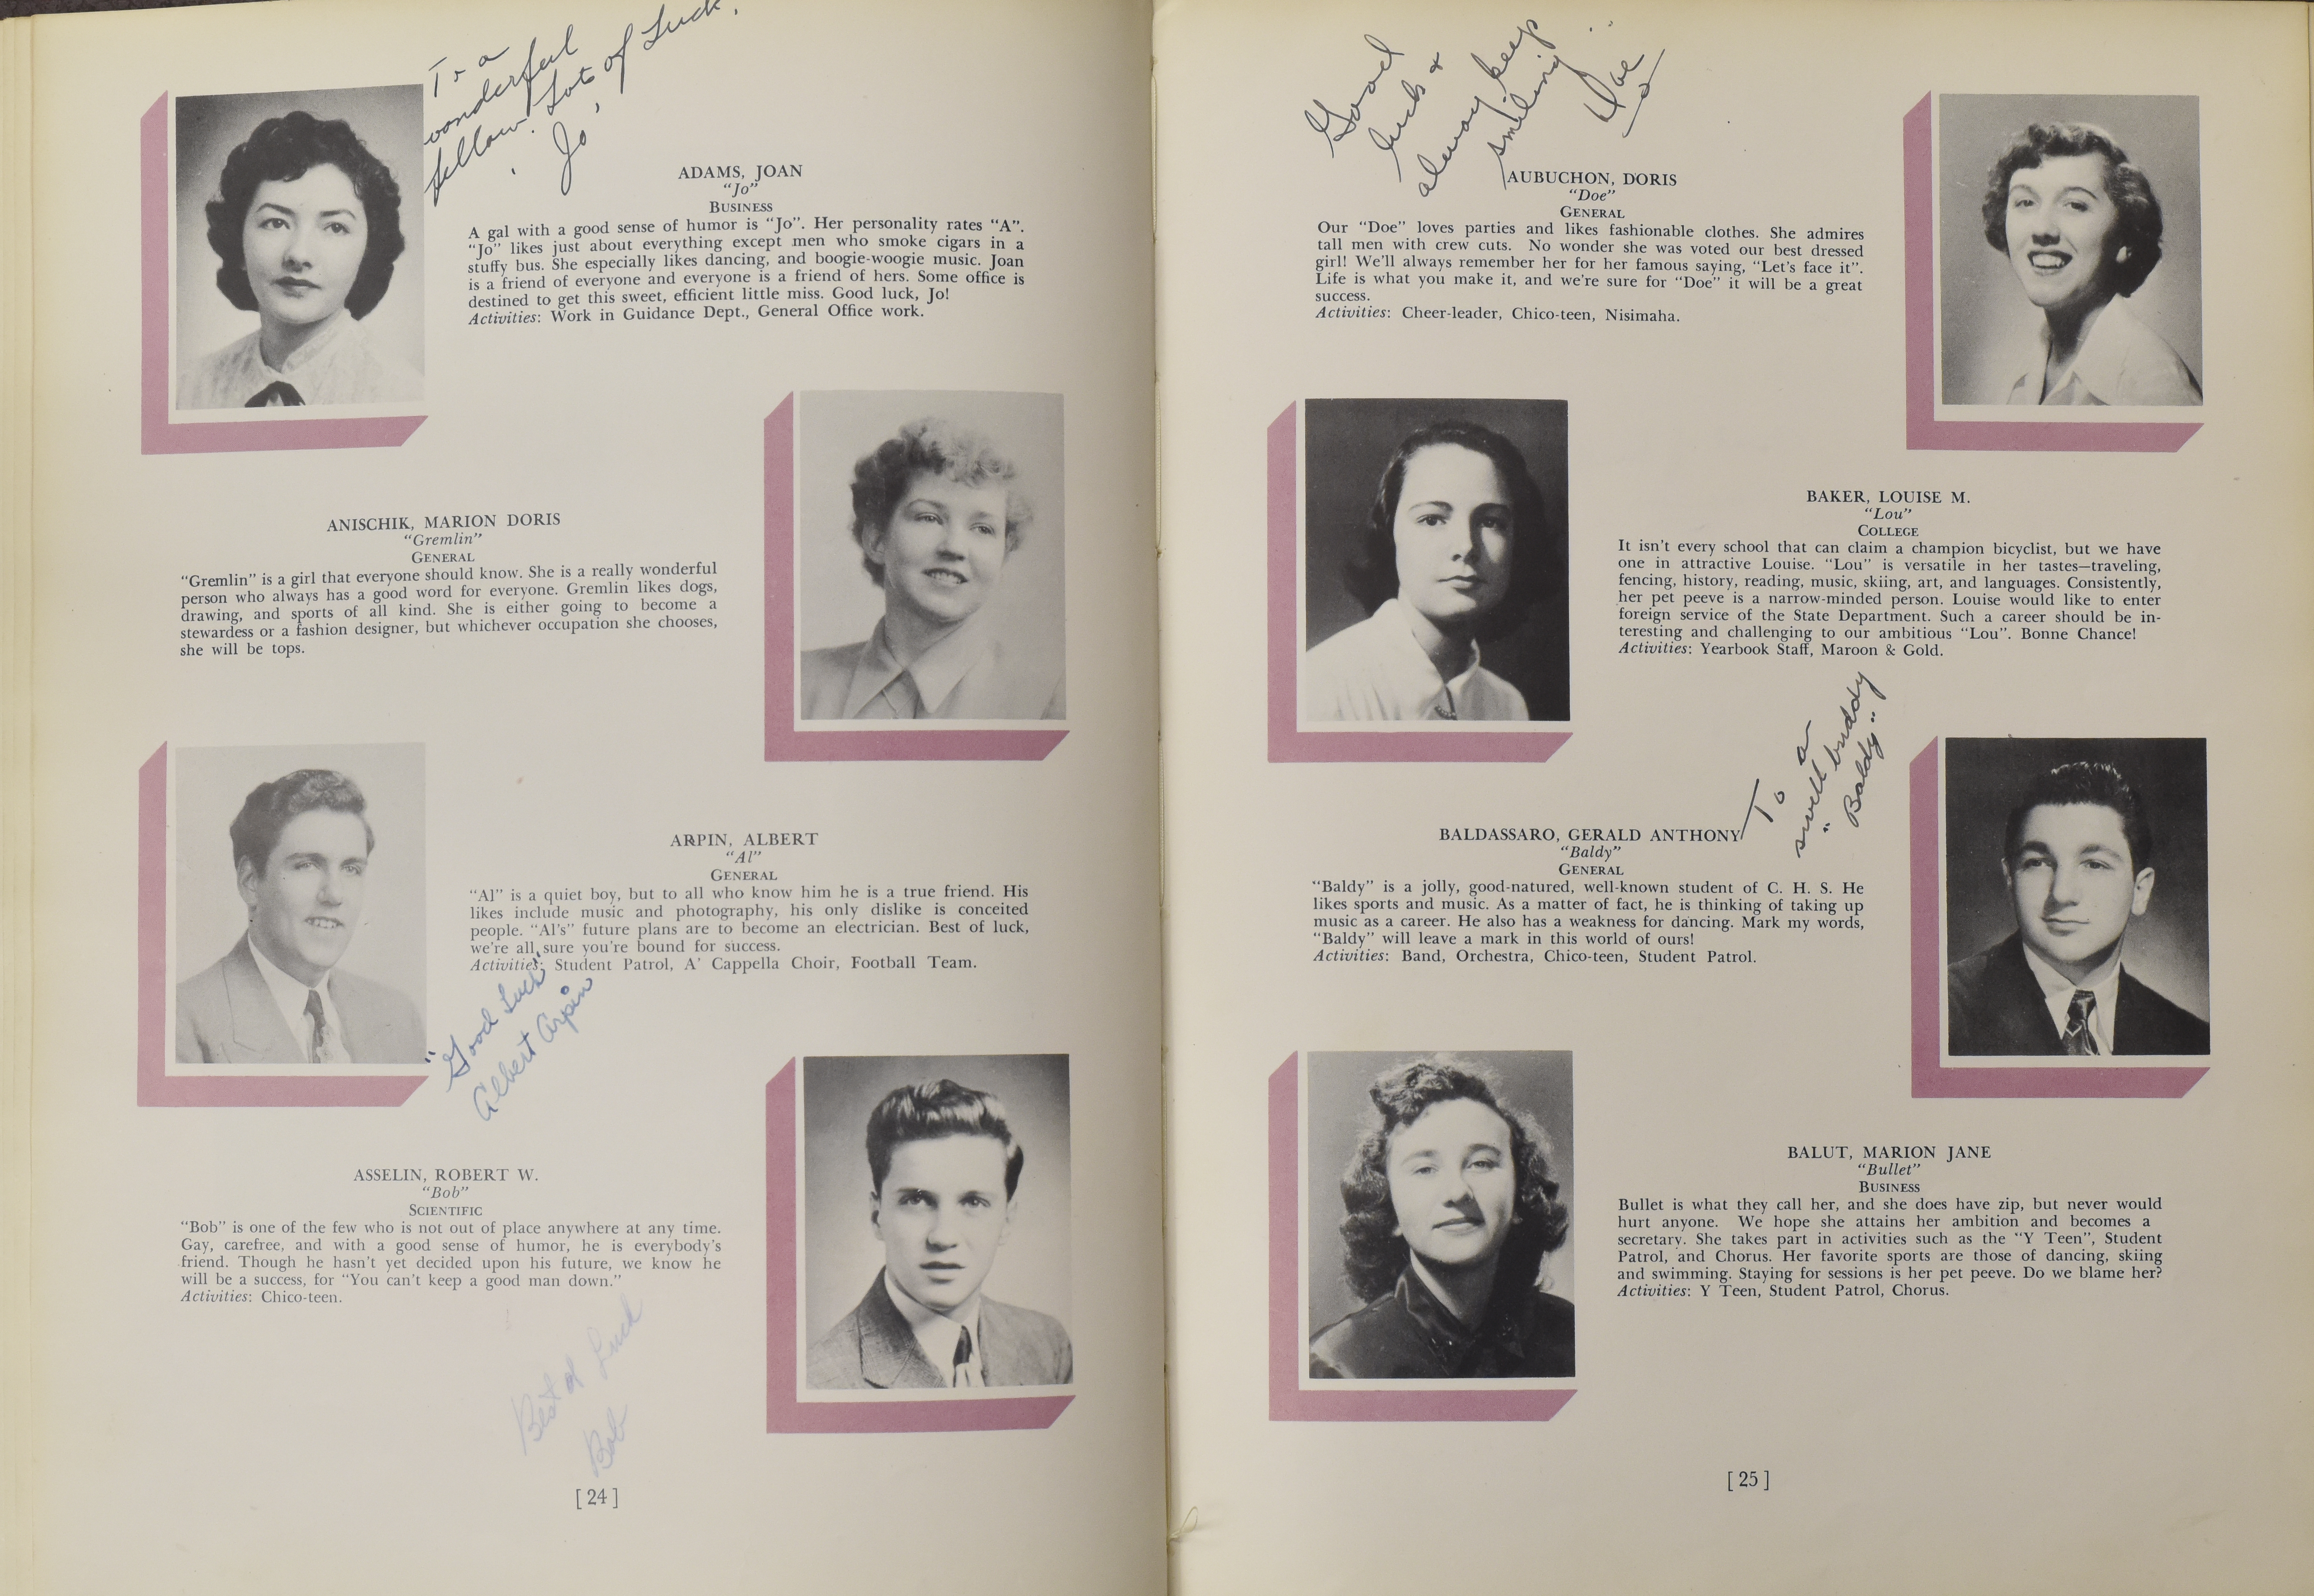 To a
wonderful
fellow. Lots of Luck.
"Jo"
ADAMS, JOAN
"Jo"
BUSINESS
A gal with a good sense of humor is "Jo". Her personality rates "A".
"Jo" likes just about everything except men who smoke cigars in a
stuffy bus. She especially likes dancing, and boogie-woogie music. Joan
is a friend of everyone and everyone is a friend of hers. Some office is
destined to get this sweet, efficient little miss. Good luck, Jo!
Activities: Work in Guidance Dept., General Office work.
ANISCHIK, MARION DORIS
"Gremlin"
GENERAL
"Gremlin" is a girl that everyone should know. She is a really wonderful
person who always has a good word for everyone. Gremlin likes dogs,
drawing, and sports of all kind. She is either going to become a
stewardess or a fashion designer, but whichever occupation she chooses,
she will be tops.
ARPIN, ALBERT
"Al"
GENERAL
"Al" is a quiet boy, but to all who know him he is a true friend. His
likes include music and photography, his only dislike is conceited
people. "Al's" future plans are to become an electrician. Best of luck,
we're all sure you're bound for success.
Activities: Student Patrol, A' Cappella Choir, Football Team.
"Good Luck"
Albert Arpin
ASSELIN, ROBERT W.
"Bob"
SCIENTIFIC
"Bob" is one of the few who is not out of place anywhere at any time.
Gay, carefree, and with a good sense of humor, he is everybody's
friend. Though he hasn't yet decided upon his future, we know he
will be a success, for "You can't keep a good man down."
Activities: Chico-teen.
Best of Luck
Bob
[ 24 ]
Good
luck &
alway keep
smiling
Doe
AUBUCHON, DORIS
"Doe"
GENERAL
Our "Doe" loves parties and likes fashionable clothes. She admires
tall men with crew cuts. No wonder she was voted our best dressed
girl! We'll always remember her for her famous saying, "Let's face it".
Life is what you make it, and we're sure for "Doe" it will be a great
success.
Activities: Cheer-leader, Chico-teen, Nisimaha.
BAKER, LOUISE M.
"Lou"
COLLEGE
It isn't every school that can claim a champion bicyclist, but we have
one in attractive Louise. "Lou" is versatile in her tastes—traveling,
fencing, history, reading, music, skiing, art, and languages. Consistently,
her pet peeve is a narrow-minded person. Louise would like to enter
foreign service of the State Department. Such a career should be in-
teresting and challenging to our ambitious "Lou". Bonne Chance!
Activities: Yearbook Staff, Maroon & Gold.
To a
swell buddy
"Baldy"
BALDASSARO, GERALD ANTHONY
"Baldy"
GENERAL
"Baldy" is a jolly, good-natured, well-known student of C. H. S. He
likes sports and music. As a matter of fact, he is thinking of taking up
music as a career. He also has a weakness for dancing. Mark my words,
"Baldy" will leave a mark in this world of ours!
Activities: Band, Orchestra, Chico-teen, Student Patrol.
BALUT, MARION JANE
"Bullet"
BUSINESS
Bullet is what they call her, and she does have zip, but never would
hurt anyone. We hope she attains her ambition and becomes a
secretary. She takes part in activities such as the "Y Teen", Student
Patrol, and Chorus. Her favorite sports are those of dancing, skiing
and swimming. Staying for sessions is her pet peeve. Do we blame her?
Activities: Y Teen, Student Patrol, Chorus.
[ 25 ]